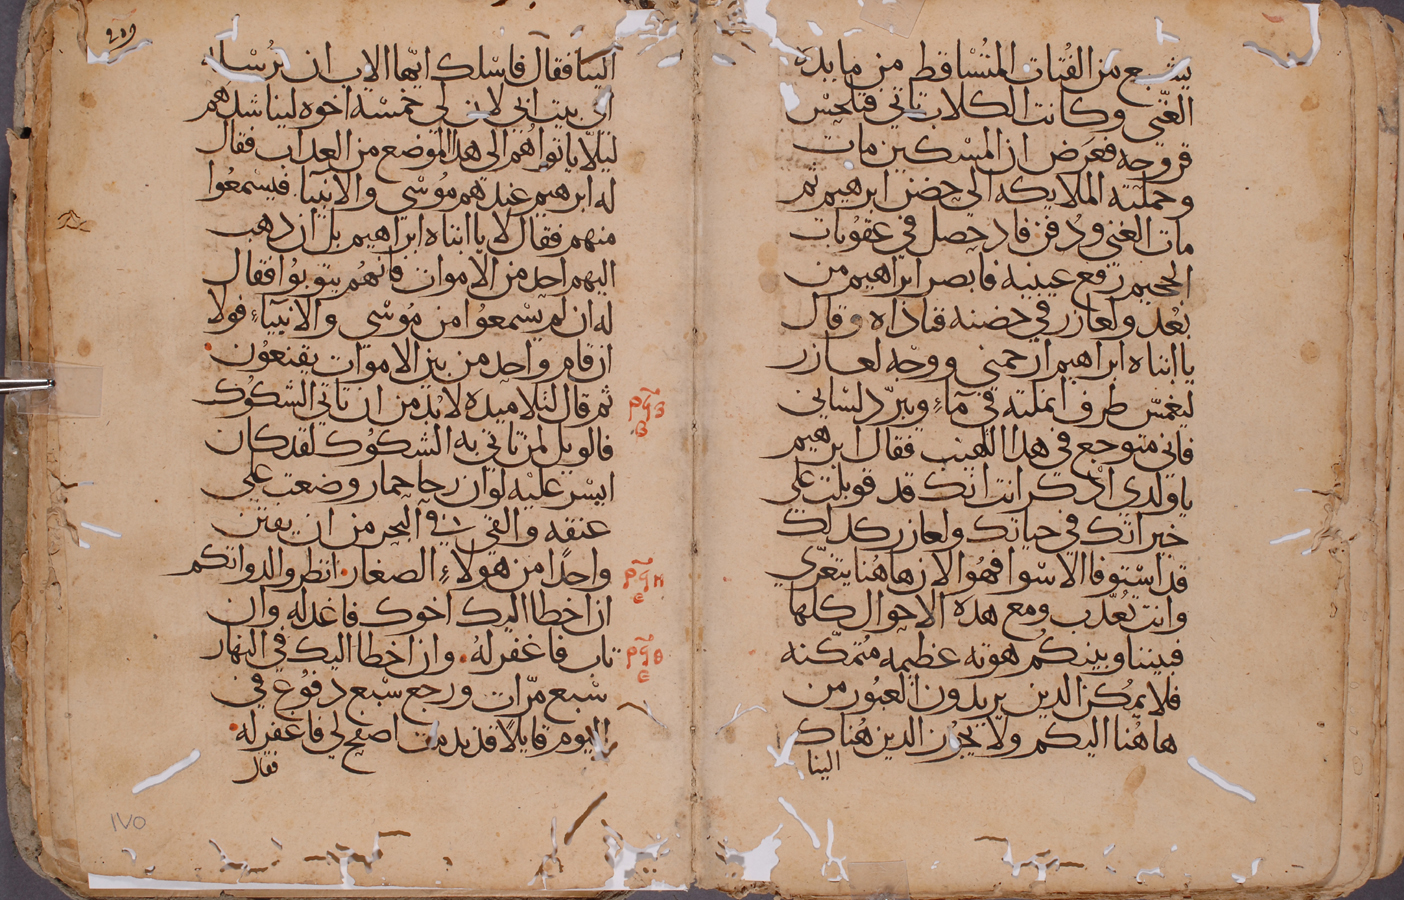 يشبع من الفُتات المتُسْاقط من مايدة
الغني وكانت الكلاب تاتي فتلحسْ
قروحه فعَرض ان المسْكين مات
وحملته الملايكه الي حضن ابرهيم ثم
مات الغني ودُفن فاد حصل في عقوُبات
الجحيم رفع عينيه فابصر ابراهيم من
بُعْد ولعازر في حضنه فناداه وقال
يا ابتاه ابراهيم ارحمني ووجّه لعازر
ليغمسّ طرف انملته في مآءٍ ويبرّد لسْاني
فاني متوجع في هدا اللهيب فقال ابرهيم
يا ولدي اذكر انت انك قد قوبلت علي
خيراتك في حياتك ولعازر كدلك
قد استوفا الاسْوا فهوُ الان هاهُنا يتعزّي
وانت تُعدّب ومع هده الاحوال كلها
فبيننا وبينكم هوته عظيمه مُتمكّنه
فلا يمكُن الدين يريدون العبُور من
هاهُنا اليكم ولا يجوُز الدين هُناك
الينا
٢٥٩
الينا فقال فاسْلك ايّها الاب ان تُرسْله
الي بيت ابي لان لي خمسْه اخوه ليناشدهم
ليلاّ ياتوا هُم الي هدا الموضع من العداب فقال
له ابرهيم عندهم موُسْي والانبيآ فيسْمعُوا
منهم فقال لا يا ابتاه ابراهيم بل ان دهب
اليهم احد من الاموات فانهُم يتوبُوا فقال
له ان لم يسْمعُوا من مُوسْي والانبيآءِ فولا
ان قام واحد من بين الاموات يقنعوُن
ثم قال لتلاميده لا بُد من ان تاتي الشكوُك
فالويل لمن تاتي به الشكوك لقد كان
ايسْر عليْه لو ان رحا حمار وضعت علي
عنقه والقي في البحر من ان يفتن
واحدًا من هولآءِ الصغار انظروا لدواتكم
ان اخطا اليك اخوك فاعدله وان
تاب فاغفر لهُ وان اخطا اليك في النهار
سْبع مرّات ورجع سْبع دفوُع في
اليوم قايلاً قد ندمت اصفح لي فاغفر له
فقال
١٧٥